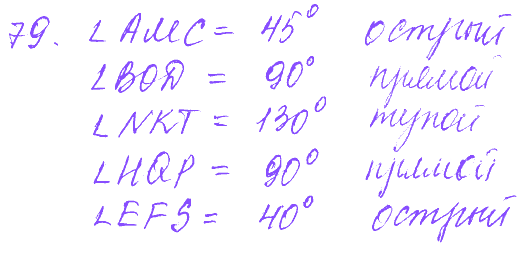 79. ∠AMC = 45° острый
∠BOD = 90° прямой
∠NKT = 130° тупой
∠HQP = 90° прямой
∠EFS = 40° острый